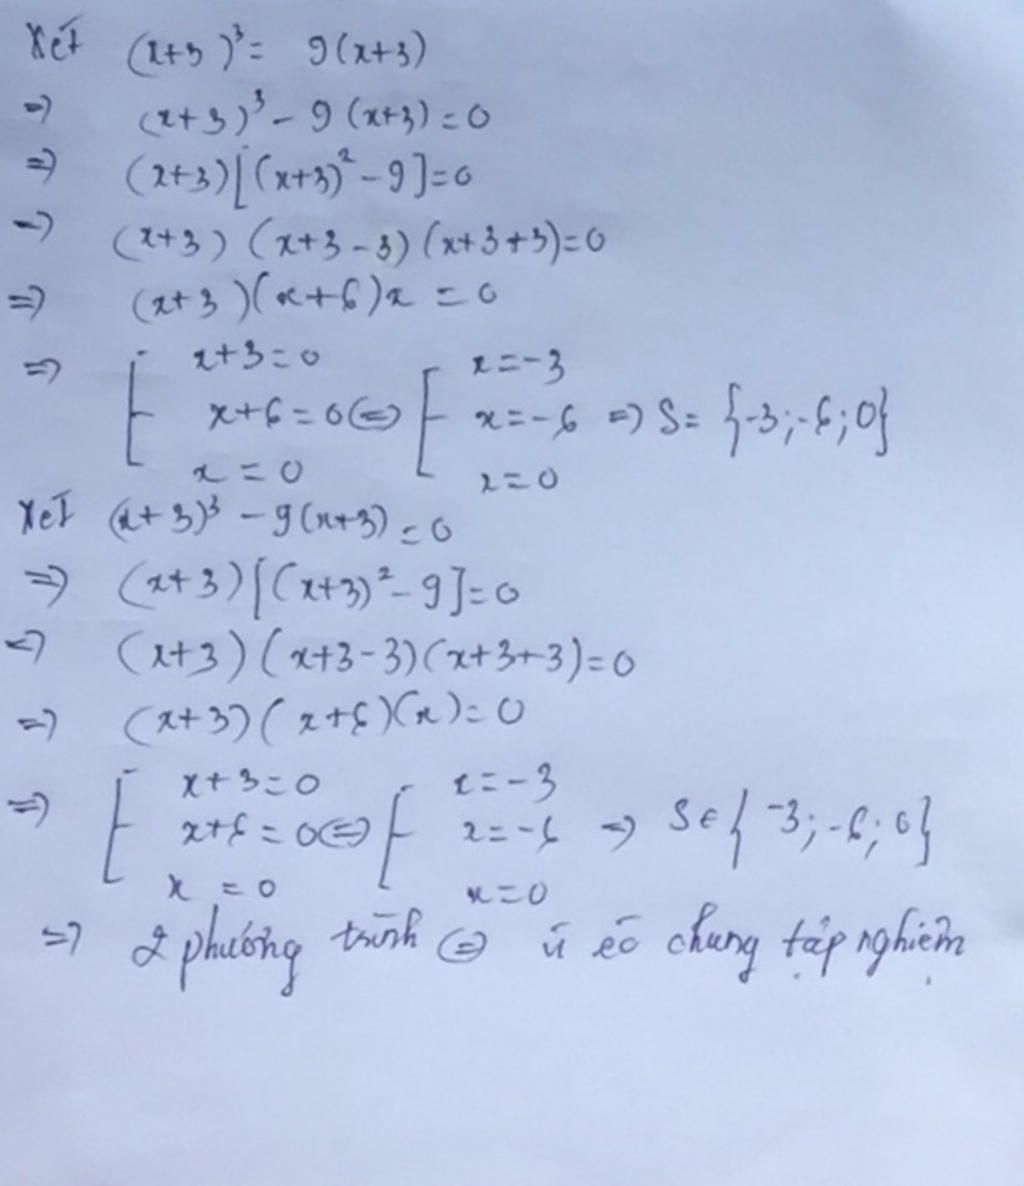 Xét (x+3)³ = 9(x+3)
=> (x+3)³ - 9(x+3) = 0
=> (x+3)[(x+3)² - 9] = 0
=> (x+3)(x+3-3)(x+3+3) = 0
=> (x+3)(x+6)x = 0
=> [ x+3=0 [ x=-3
x+6=0 <=> x=-6 => S= {-3;-6;0}
x=0 x=0
Xét (x+3)³ - 9(x+3) = 0
=> (x+3)[(x+3)² - 9] = 0
=> (x+3)(x+3-3)(x+3+3)=0
=> (x+3)(x+6)(x)=0
=> [ x+3=0 [ x=-3
x+6=0 <=> x=-6 => S∈{-3;-6;0}
x=0 x=0
=> 2 phương trình <=> chung tập nghiệm